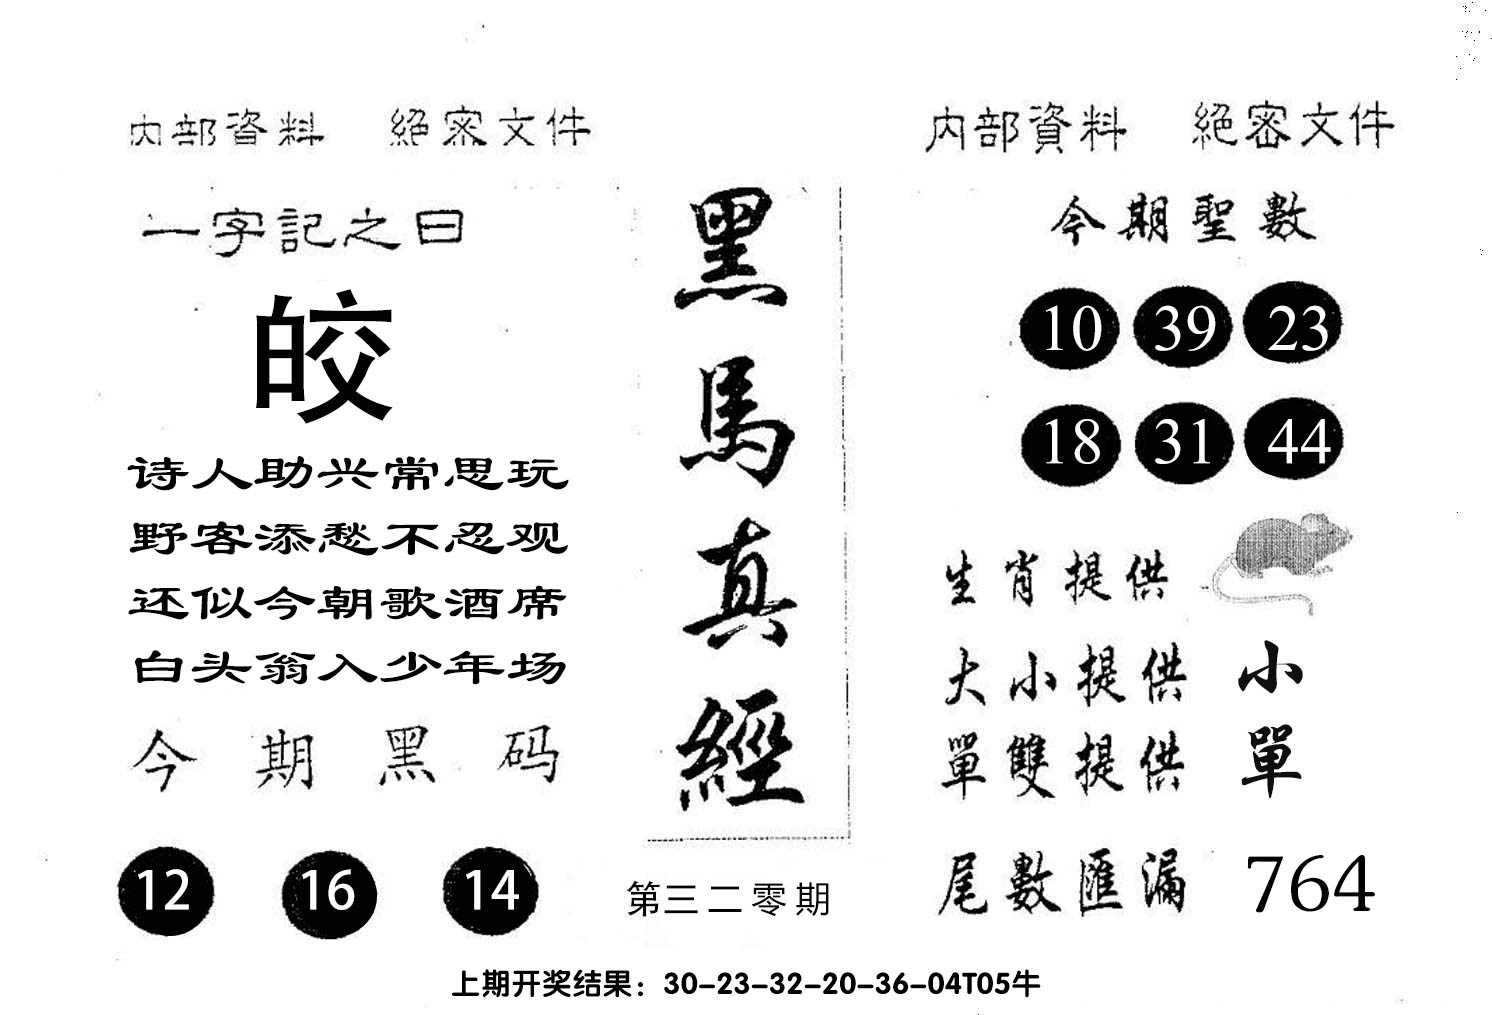 内部資料 絕密文件
一字記之曰
皎
诗人助兴常思玩
野客添愁不忍观
还似今朝歌酒席
白头翁入少年场
今期黑码
12 16 14
黑馬真經
第三二零期
内部資料 絕密文件
今期聖數
10 39 23
18 31 44
生肖提供
大小提供 小
單雙提供 單
尾數匯漏 764
上期开奖结果：30-23-32-20-36-04T05牛